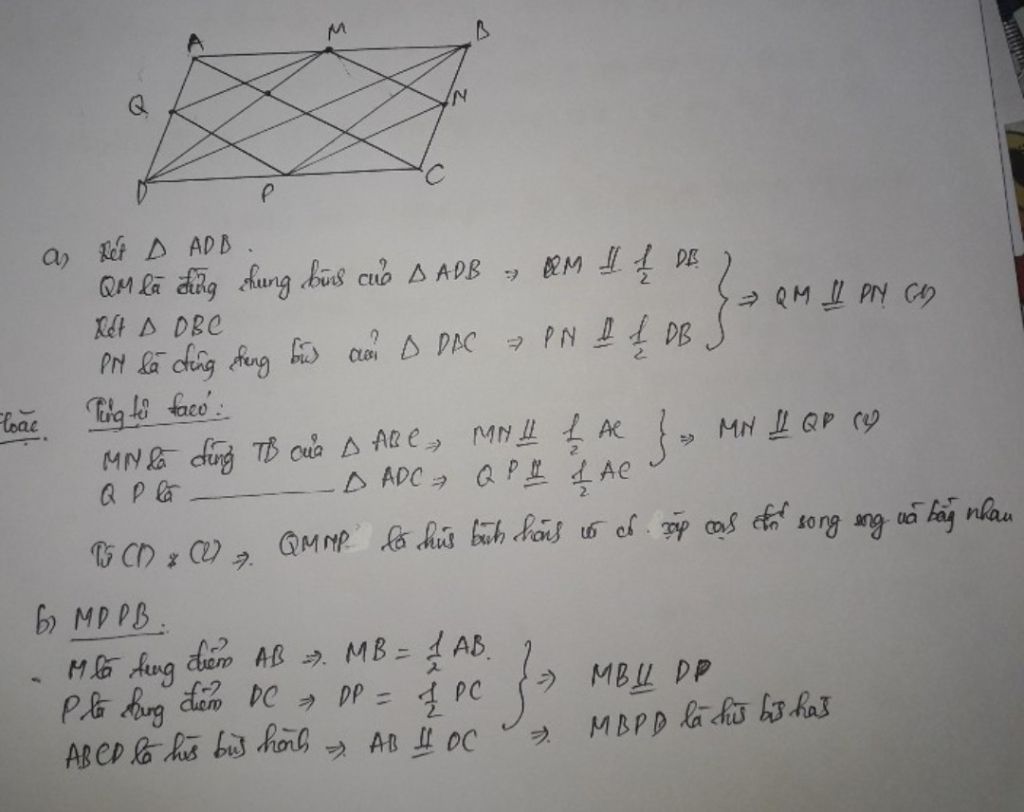 A M B
Q N
D P C
a) Xét Δ ADB.
QM là đường trung bình của Δ ADB ⇒ QM ⫽ 1/2 DB
Xét Δ DBC
PN là đường trung bình của Δ DBC ⇒ PN ⫽ 1/2 DB
⇒ QM ⫽ PN (1)
Hoặc. Tương tự ta có:
MN là đường TB của Δ ABC ⇒ MN ⫽ 1/2 AC
QP là ———— Δ ADC ⇒ QP ⫽ 1/2 AC
⇒ MN ⫽ QP (2)
Từ (1) & (2) ⇒. QMNP là hình bình hành vì có cặp cạnh đối song song và bằng nhau
b) MDPB.
- M là trung điểm AB ⇒. MB = 1/2 AB.
P là trung điểm DC ⇒ DP = 1/2 DC
⇒ MB ⫽ DP
ABCD là hình bình hành ⇒ AB ⫽ DC ⇒. MBPD là hình bình hành